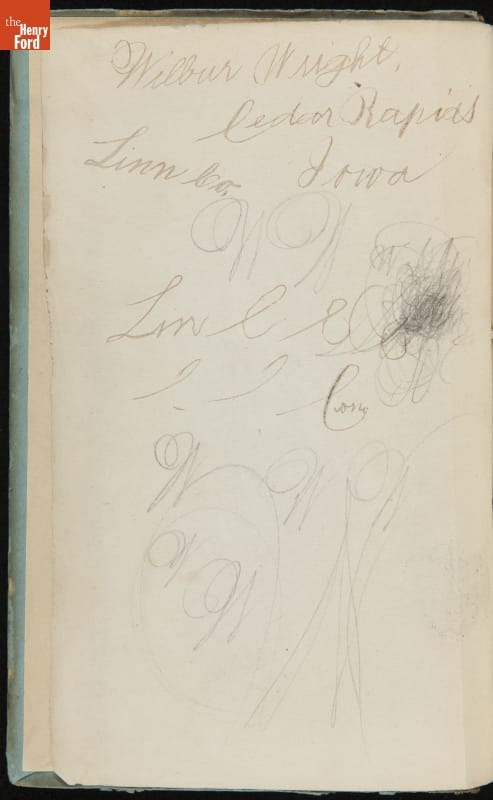 the
Henry
Ford
Wilbur Wright,
Cedar Rapids
Linn Co. Iowa
W W
W
Lin C 8
Com
W W W
W
W